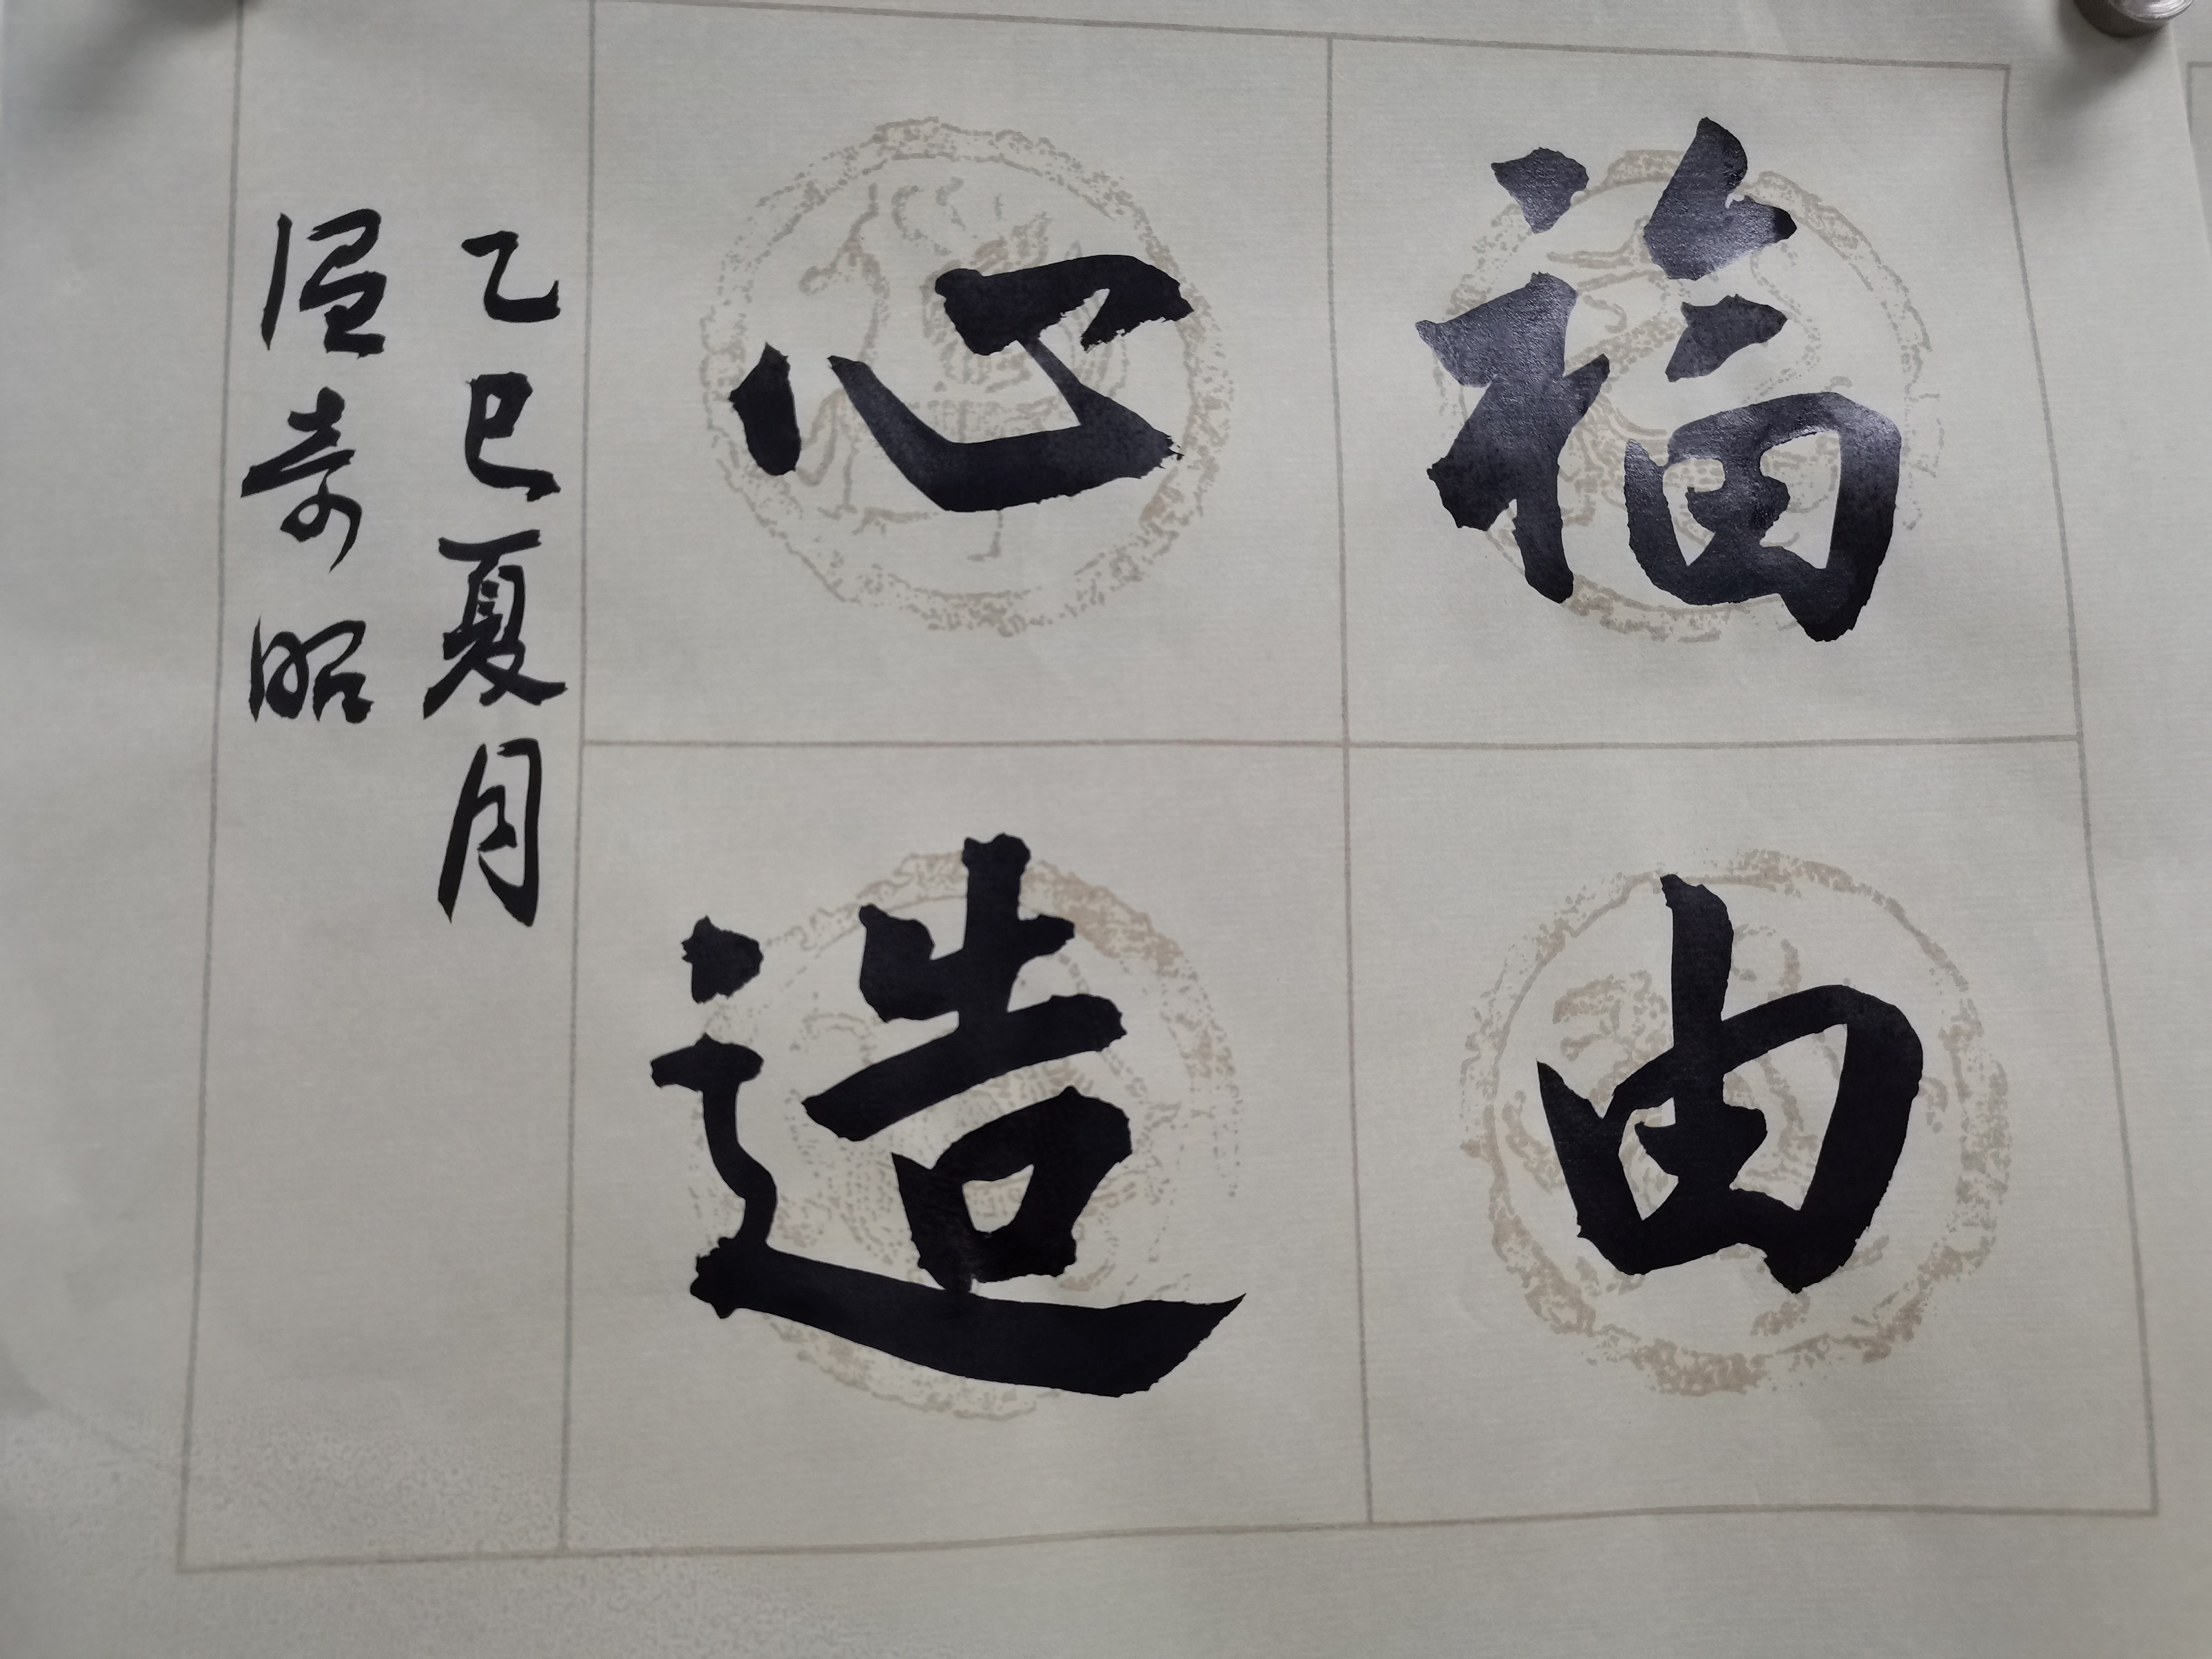 福由
心造
乙巳夏月
温奇昭